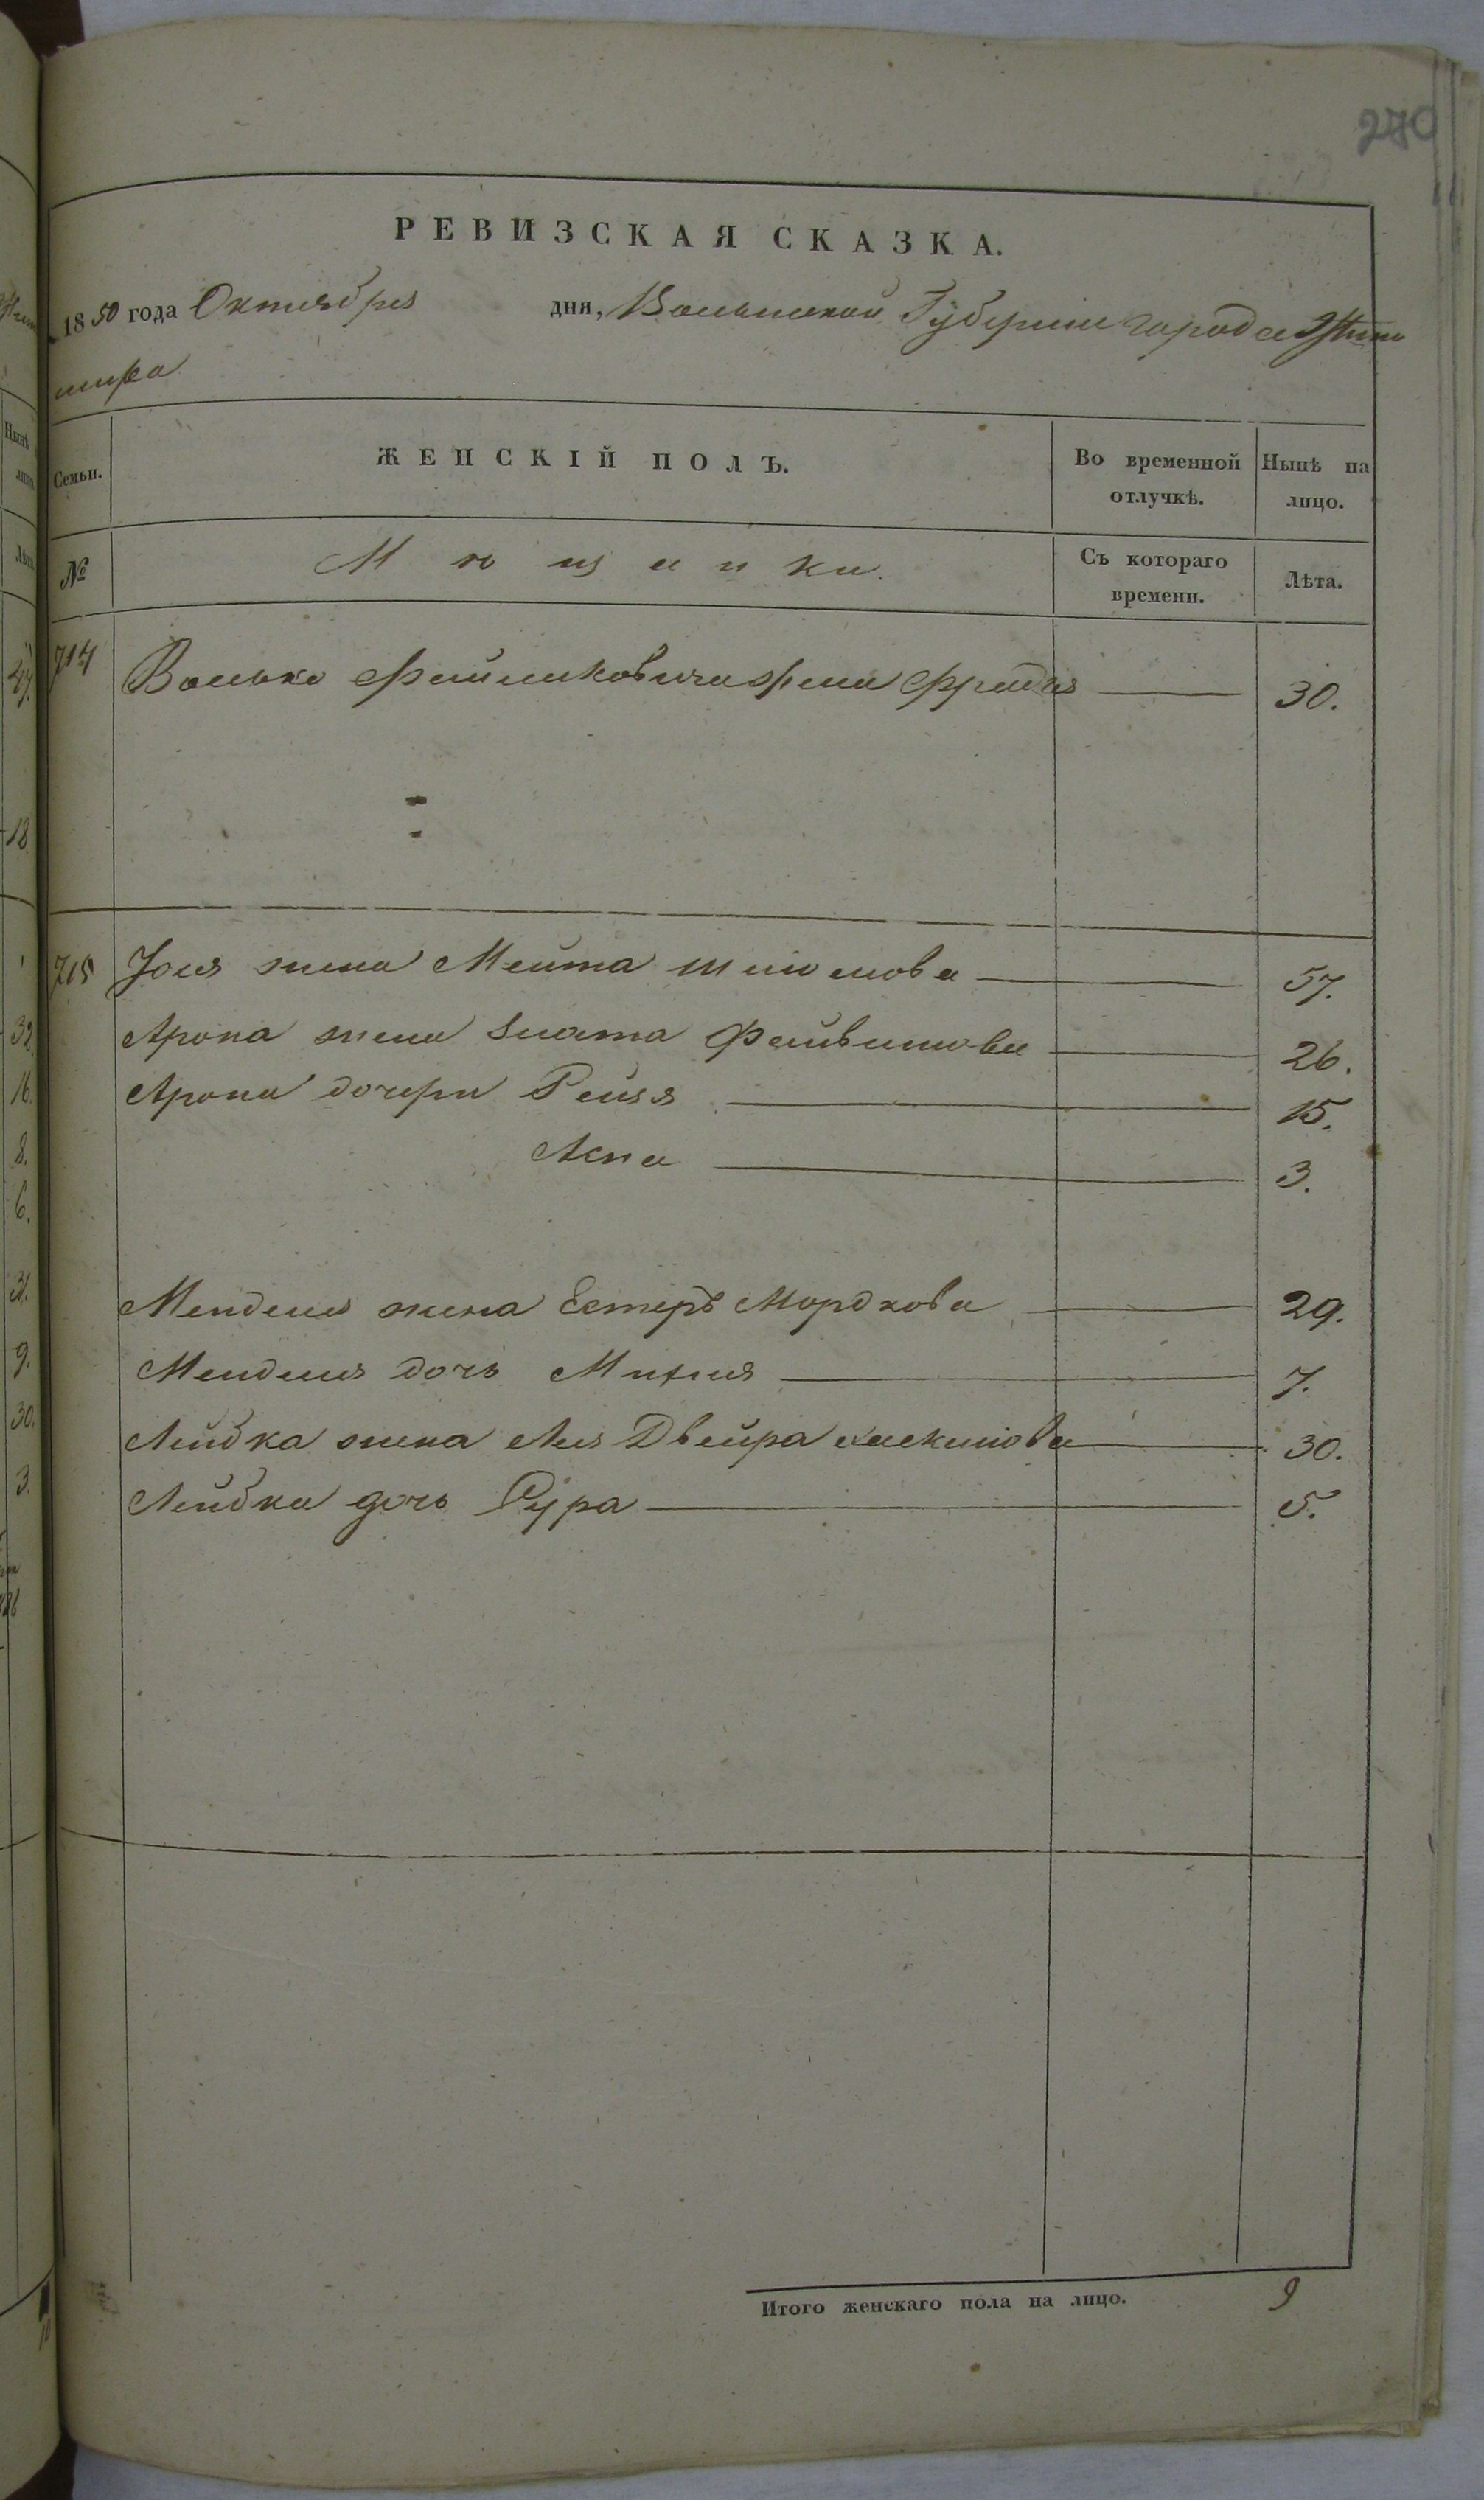 270
РЕВИЗСКАЯ СКАЗКА.
1850 года Октября дня, Волынской Губернiи города Жито
мира
Семьи. ЖЕНСКIЙ ПОЛЪ. Во временной отлучкѣ. Нынѣ на лицо.
№ Мѣщанки. Съ котораго времени. Лѣта.
714 Волька жена Фрейда 30.
715 Иося жена 57.
Арона жена Злата Файвишова 26.
Арона дочери Рейзя 15.
Асна 3.
Менделя жена Естеръ Мордкова 29.
Менделя дочь 7.
Лейбка жена Двейра 30.
Лейбка дочь Сура 5.
Итого женскаго пола на лицо. 9